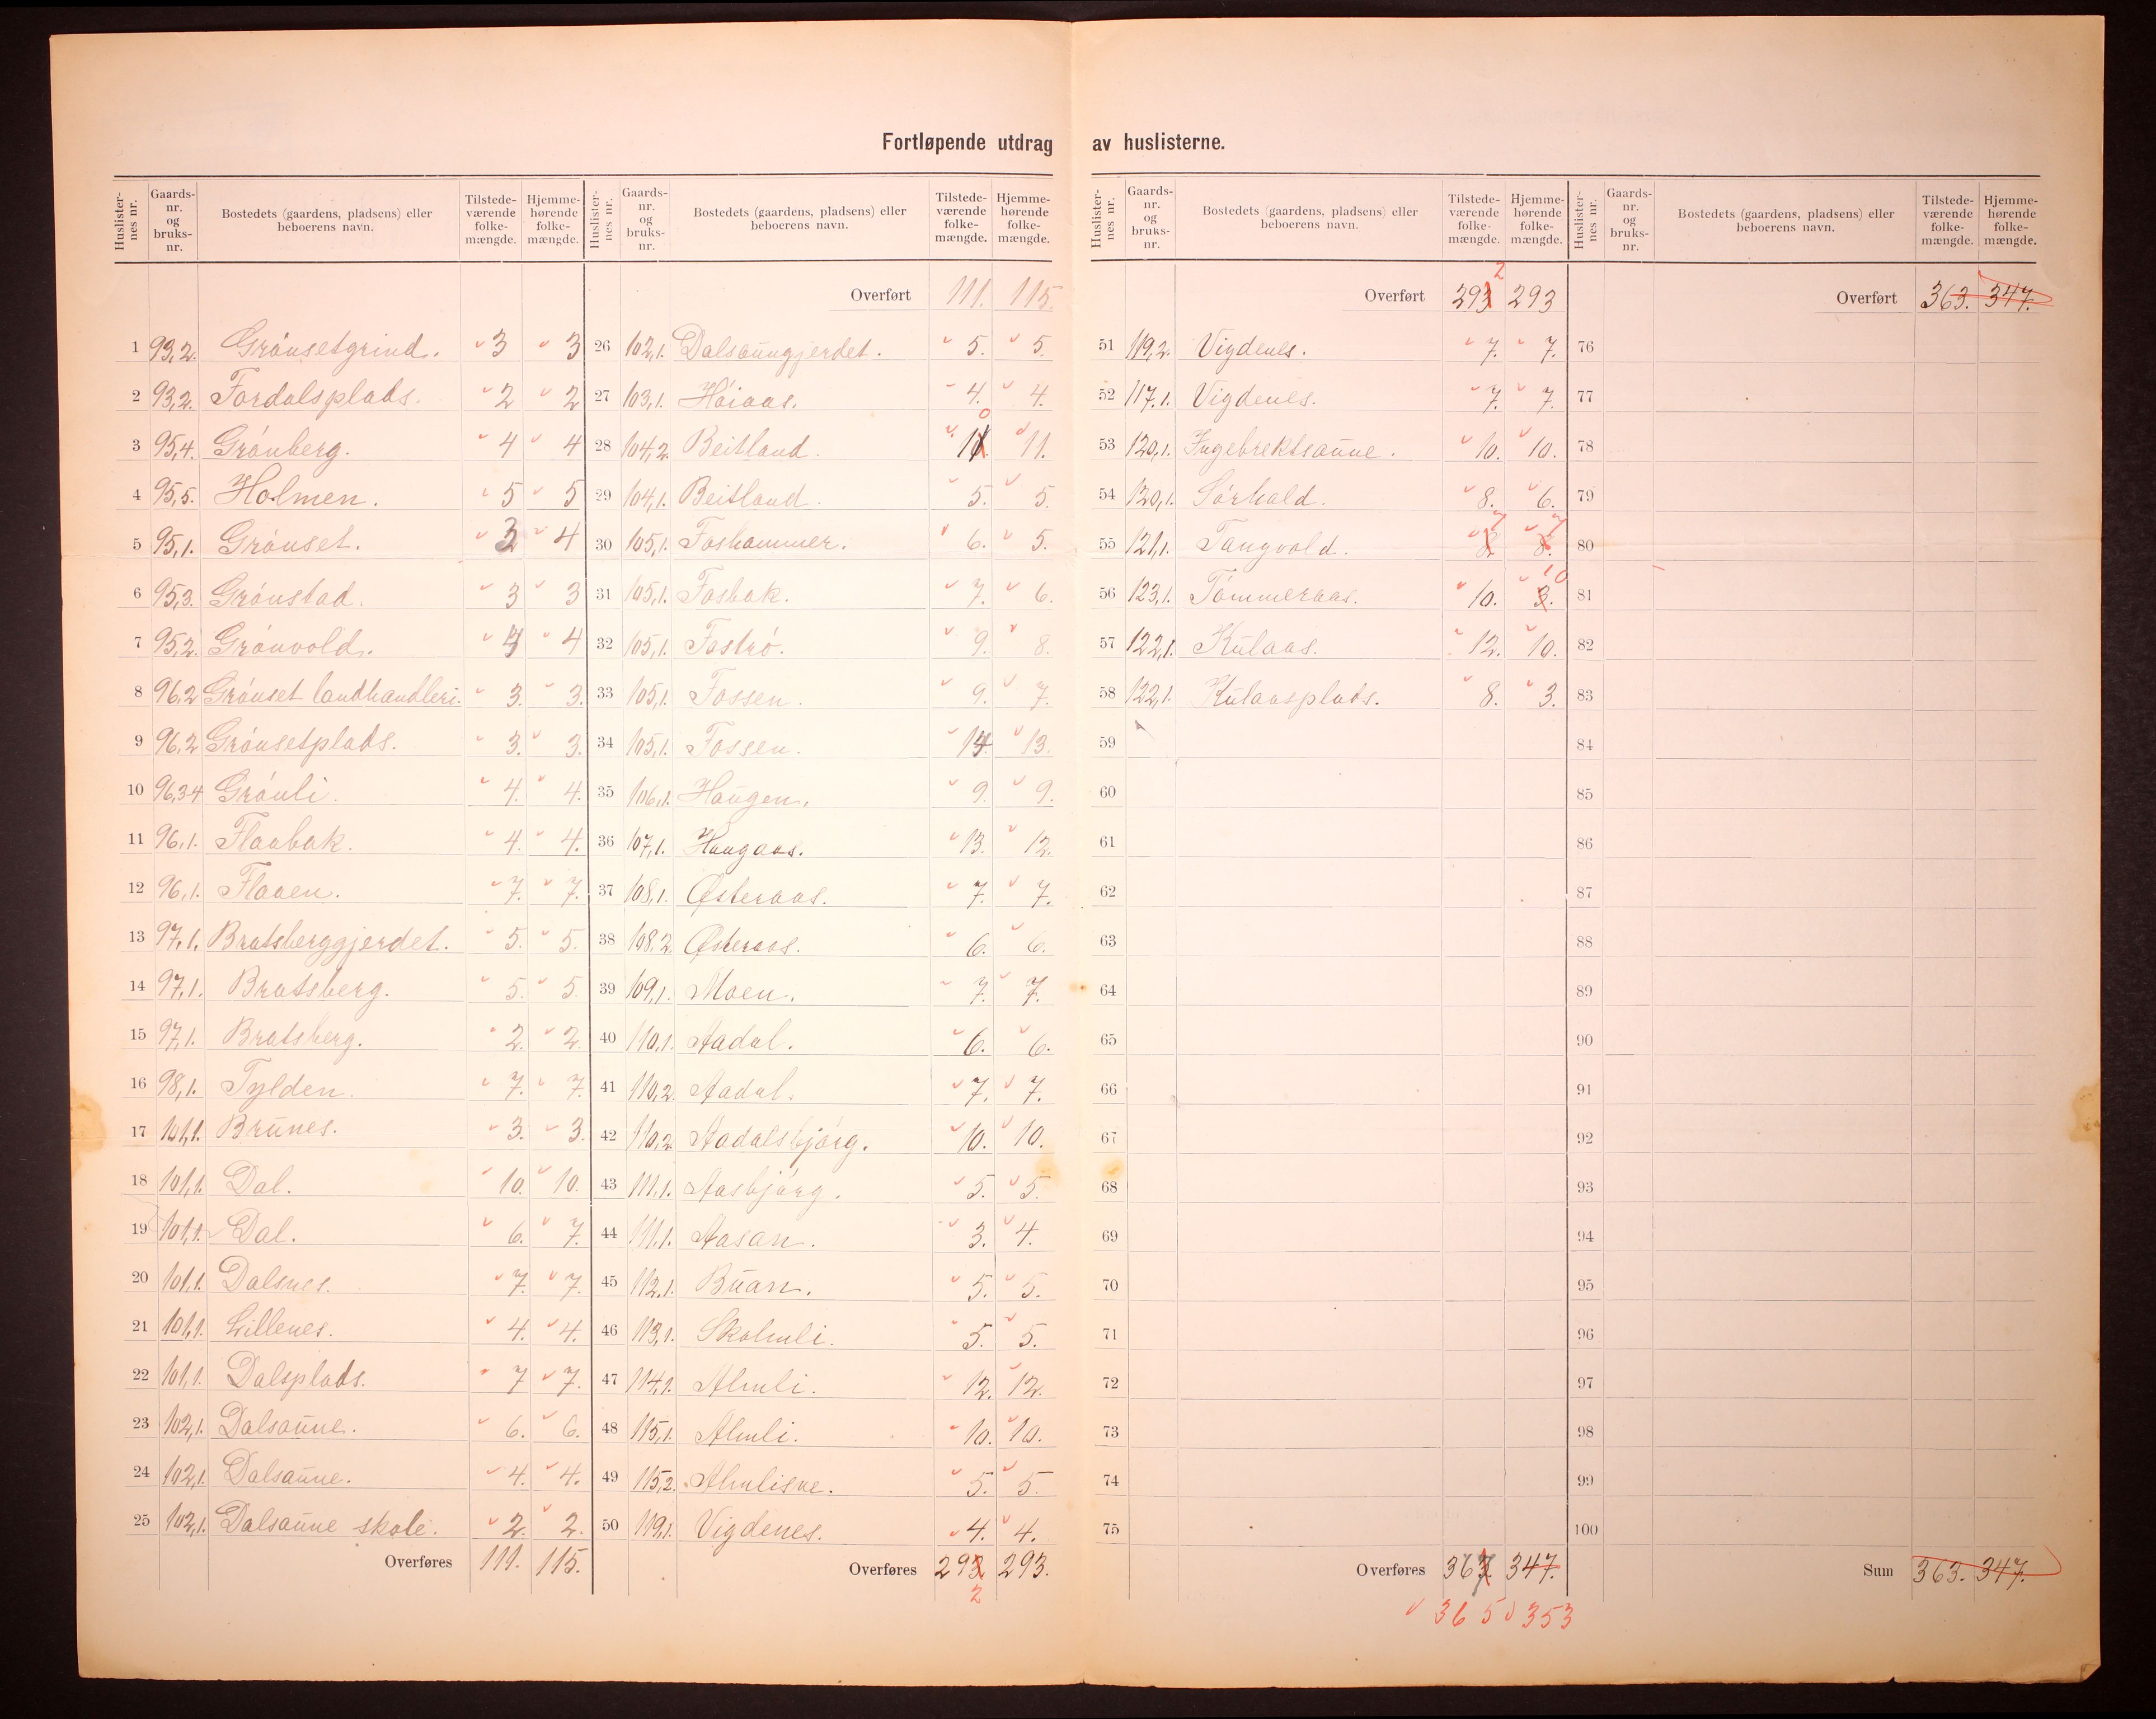 Fortløpende utdrag av huslisterne.
Huslisternes nr. Gaards-nr. og bruks-nr. Bostedets (gaardens, pladsens) eller beboerens navn. Tilstede-værende folke-mængde. Hjemme-hørende folke-mængde.
1 93,2. Grönsetgrind. 3 3
2 93,2. Fordalsplads. 2 2
3 95,4. Grönberg. 4 4
4 95,5. Holmen. 5 5
5 95,1. Grönset. 3 4
6 95,3. Grönstad. 3 3
7 95,2. Grönvold. 4 4
8 96,2 Grönset landhandleri. 3. 3.
9 96,2 Grönsetplads. 3. 3.
10 96,34 Grönli. 4. 4.
11 96,1. Flaabak. 4. 4.
12 96,1. Flaaen. 7. 7.
13 97,1. Bratsberggjerdet. 5. 5.
14 97,1. Bratsberg. 5. 5.
15 97,1. Bratsberg. 2. 2.
16 98,1. Tylden. 7. 7.
17 101,1. Brünes. 3. 3.
18 101,1. Dal. 10. 10.
19 101,1. Dal. 6. 7.
20 101,1. Dalsnes. 7. 7.
21 101,1. Lillenes. 4. 4.
22 101,1. Dalsplads. 7 7.
23 102,1. Dalsaüne. 6. 6.
24 102,1. Dalsaüne. 4. 4.
25 102,1. Dalsaüne skole. 2. 2.
Overføres 111. 115.
Huslisternes nr. Gaards-nr. og bruks-nr. Bostedets (gaardens, pladsens) eller beboerens navn. Tilstede-værende folke-mængde. Hjemme-hørende folke-mængde.
Overført 111. 115.
26 102,1. Dalsaungjerdet. 5. 5.
27 103,1. Höiaas. 4. 4.
28 104,2. Beitland. 11. 0 11.
29 104,1. Beitland. 5. 5.
30 105,1. Foshammer. 6. 5.
31 105,1. Fosbak. 7. 6.
32 105,1. Foströ. 9. 8.
33 105,1. Fossen. 9. 7.
34 105,1. Fossen. 14. 13.
35 106,1. Haügen. 9. 9.
36 107,1. Haugaas. 13. 12.
37 108,1. Østeraas. 7. 7.
38 108.2. Østeraas. 6. 6.
39 109,1. Moen. 7. 7.
40 110,1. Aadal. 6. 6.
41 110,2. Aadal. 7. 7.
42 110,2. Aadalsbjörg. 10. 10.
43 111,1. Aasbjörg. 5. 5.
44 111,1. Aasan. 3. 4.
45 112,1. Büan. 5. 5.
46 113,1. Skolmli. 5. 5.
47 114,1. Almli. 12. 12.
48 115,1. Almli. 10. 10.
49 115,2. Almlisve. 5. 5.
50 119,1. Vigdenes. 4. 4.
Overføres 293 2 293.
Huslisternes nr. Gaards-nr. og bruks-nr. Bostedets (gaardens, pladsens) eller beboerens navn. Tilstede-værende folke-mængde. Hjemme-hørende folke-mængde.
Overført 293 2 293
51 119,2. Vigdenes. 7. 7.
52 117.1. Vigdenes. 7. 7.
53 120,1. Ingebrektsaüne. 10. 10.
54 120,1. Sörhald. 8. 6.
55 121,1. Tangvold. 8. 7 8. 7
56 123,1. Tömmeraas. 10. 3. 10
57 122,1. Külaas. 12. 10.
58 122,1. Külaasplads. 8. 3.
59
60
61
62
63
64
65
66
67
68
69
70
71
72
73
74
75
Overføres 363 347.
365 353
Huslisternes nr. Gaards-nr. og bruks-nr. Bostedets (gaardens, pladsens) eller beboerens navn. Tilstede-værende folke-mængde. Hjemme-hørende folke-mængde.
Overført 363. 347.
76
77
78
79
80
81
82
83
84
85
86
87
88
89
90
91
92
93
94
95
96
97
98
99
100
Sum 363. 347.